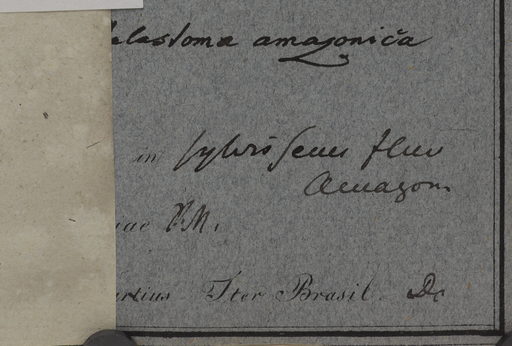 elastoma amazonica
in sylvis secus fluv
Amazon.
uae M.
artius Iter Brasil. Dc